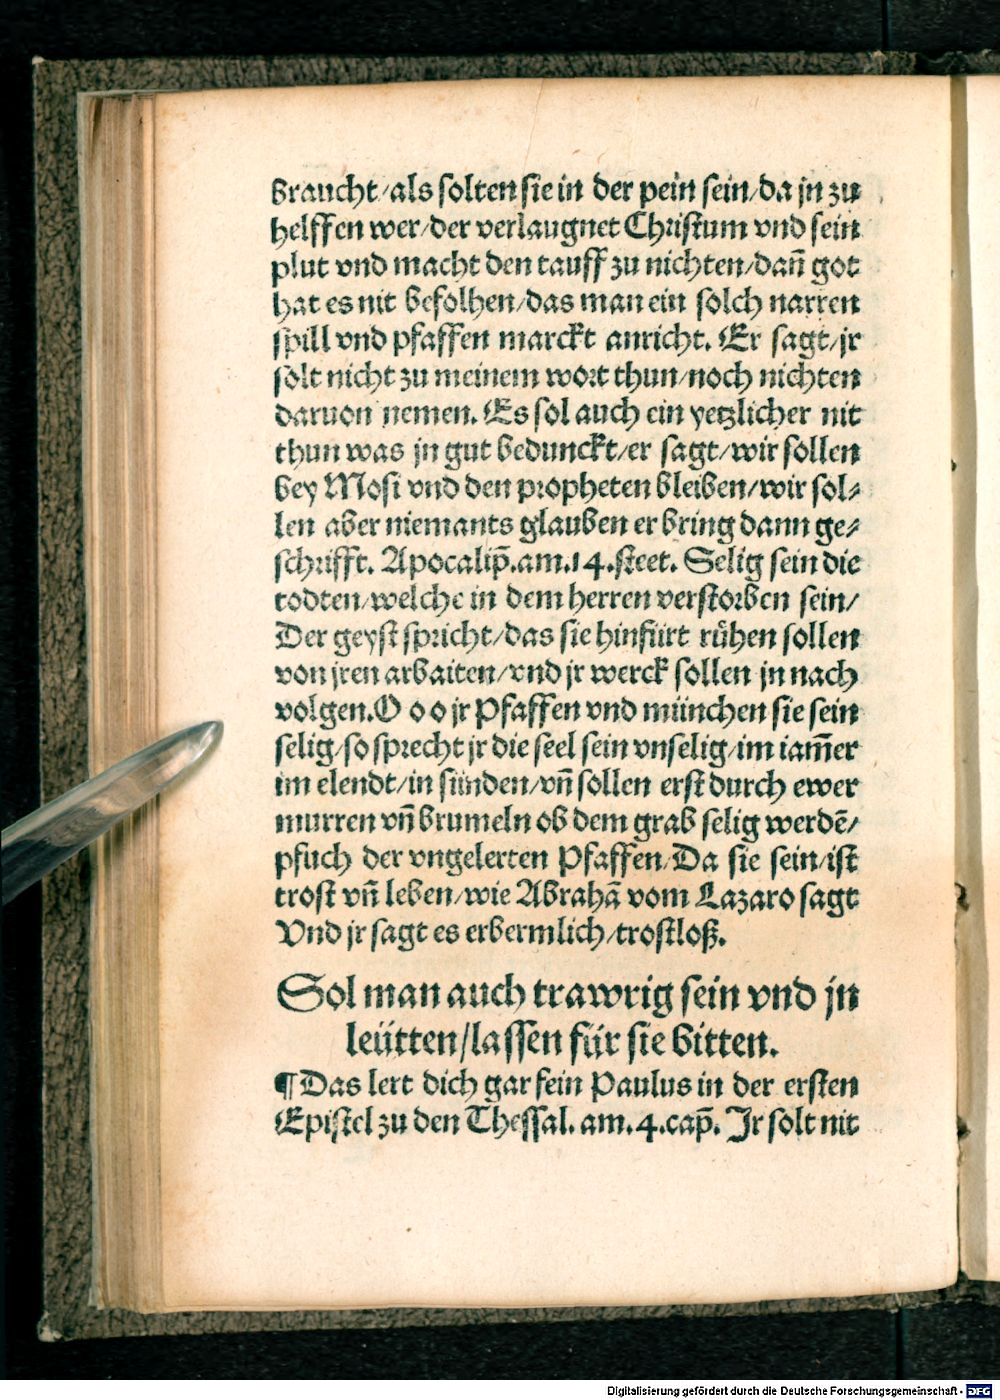 braucht/als solten sie in der pein sein/da jn zu
helffen wer/der verlaugnet Christum vnd sein
plut vnd macht den tauff zu nichten/dañ got
hat es nit befolhen/das man ein solch narren
spill vnd pfaffen marckt anricht. Er sagt/jr
solt nicht zu meinem wort thun/noch nichten
daruon nemen. Es sol auch ein yetzlicher nit
thun was jn gut bedunckt/er sagt/wir sollen
bey Mosi vnd den propheten bleiben/wir sol⸗
len aber niemants glauben er bring dann ge⸗
schrifft. Apocalip̃.am.14.steet. Selig sein die
todten/welche in dem herren verstorben sein/
Der geyst spricht/das sie hinfürt růhen sollen
von jren arbaiten/vnd jr werck sollen jn nach
volgen.O o o jr Pfaffen vnd münchen sie sein
selig/so sprecht jr die seel sein vnselig/im iam̃er
im elendt/in sünden/vñ sollen erst durch ewer
murren vñ brumeln ob dem grab selig werdẽ/
pfuch der vngelerten Pfaffen/Da sie sein/ist
trost vñ leben/wie Abrahã vom Lazaro sagt
Vnd jr sagt es erbermlich/trostloß.
Sol man auch trawrig sein vnd jn
leütten/lassen für sie bitten.
¶Das lert dich gar fein Paulus in der ersten
Epistel zu den Thessal. am. 4.cap̃. Jr solt nit
Digitalisierung gefördert durch die Deutsche Forschungsgemeinschaft - DFG